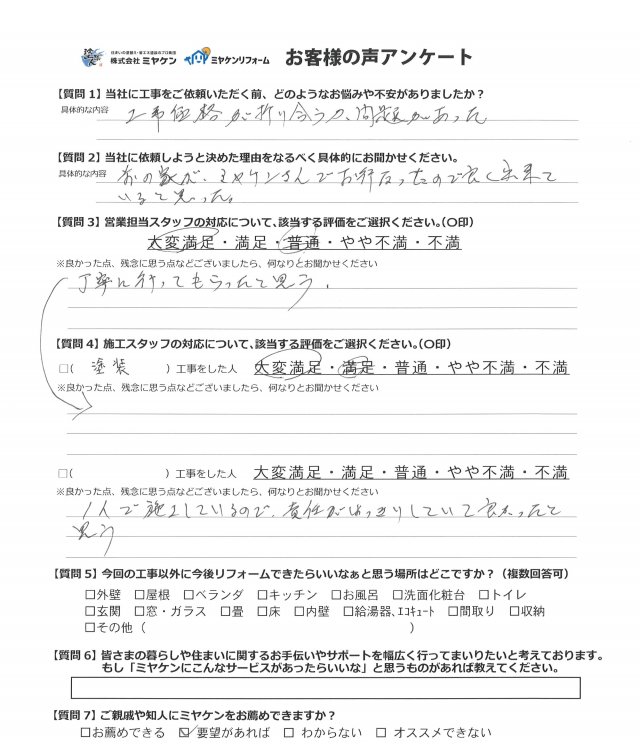 住まいの塗替え・省エネ塗装のプロ集団
株式会社 ミヤケン ミヤケンリフォーム お客様の声アンケート
【質問 1】当社に工事をご依頼いただく前、どのようなお悩みや不安がありましたか？
具体的な内容 工事価格が折り合うか、問題があった
【質問 2】当社に依頼しようと決めた理由をなるべく具体的にお聞かせください。
具体的な内容 前の家が、ミヤケンさんでお行なったので良く出来て
いると思った。
【質問 3】営業担当スタッフの対応について、該当する評価をご選択ください。(○印)
大変満足・満足・普通・やや不満・不満
※良かった点、残念に思う点などございましたら、何なりとお聞かせください
丁寧に行ってもらったと思う.
【質問 4】施工スタッフの対応について、該当する評価をご選択ください。(○印)
□( 塗装 ) 工事をした人 大変満足・満足・普通・やや不満・不満
※良かった点、残念に思う点などございましたら、何なりとお聞かせください
□( ) 工事をした人 大変満足・満足・普通・やや不満・不満
※良かった点、残念に思う点などございましたら、何なりとお聞かせください
1人で施工しているので、責任がはっきりしていて良かったと
思う
【質問 5】今回の工事以外に今後リフォームできたらいいなぁと思う場所はどこですか？（複数回答可）
□外壁 □屋根 □ベランダ □キッチン □お風呂 □洗面化粧台 □トイレ
□玄関 □窓・ガラス □畳 □床 □内壁 □給湯器、ｴｺｷｭｰﾄ □間取り □収納
□その他（ ）
【質問 6】皆さまの暮らしや住まいに関するお手伝いやサポートを幅広く行ってまいりたいと考えております。
もし「ミヤケンにこんなサービスがあったらいいな」と思うものがあれば教えてください。
【質問 7】ご親戚や知人にミヤケンをお薦めできますか？
□お薦めできる ☑要望があれば □ わからない □ オススメできない